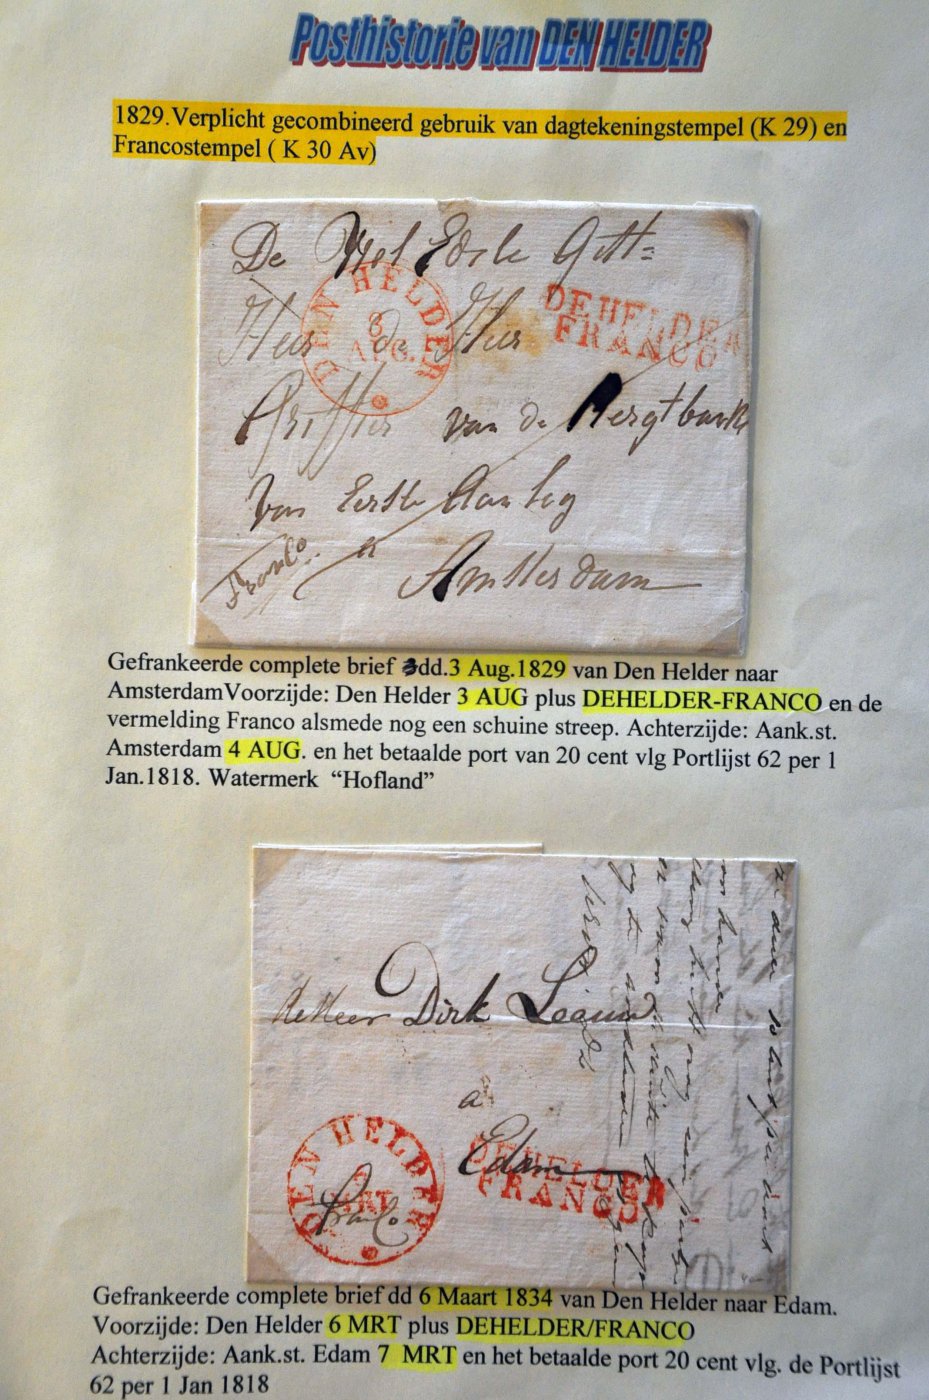 Posthistorie van DEN HELDER
1829.Verplicht gecombineerd gebruik van dagtekeningstempel (K 29) en
Francostempel ( K 30 Av)
De Wel Edele Gest=
DEN HELDER
DEHELDER
FRANCO
Heer de Heer
AUG.
Griffier van de Regtbank
van Eerste Aanleg
Franco
a
Amsterdam
Gefrankeerde complete brief dd.3 Aug.1829 van Den Helder naar
AmsterdamVoorzijde: Den Helder 3 AUG plus DEHELDER-FRANCO en de
vermelding Franco alsmede nog een schuine streep. Achterzijde: Aank.st.
Amsterdam 4 AUG. en het betaalde port van 20 cent vlg Portlijst 62 per 1
Jan.1818. Watermerk “Hofland”
Dirk Leeuw
a
Edam
DEN HELDER
MRT
Franco
DEHELDER
FRANCO
Gefrankeerde complete brief dd 6 Maart 1834 van Den Helder naar Edam.
Voorzijde: Den Helder 6 MRT plus DEHELDER/FRANCO
Achterzijde: Aank.st. Edam 7 MRT en het betaalde port 20 cent vlg. de Portlijst
62 per 1 Jan 1818